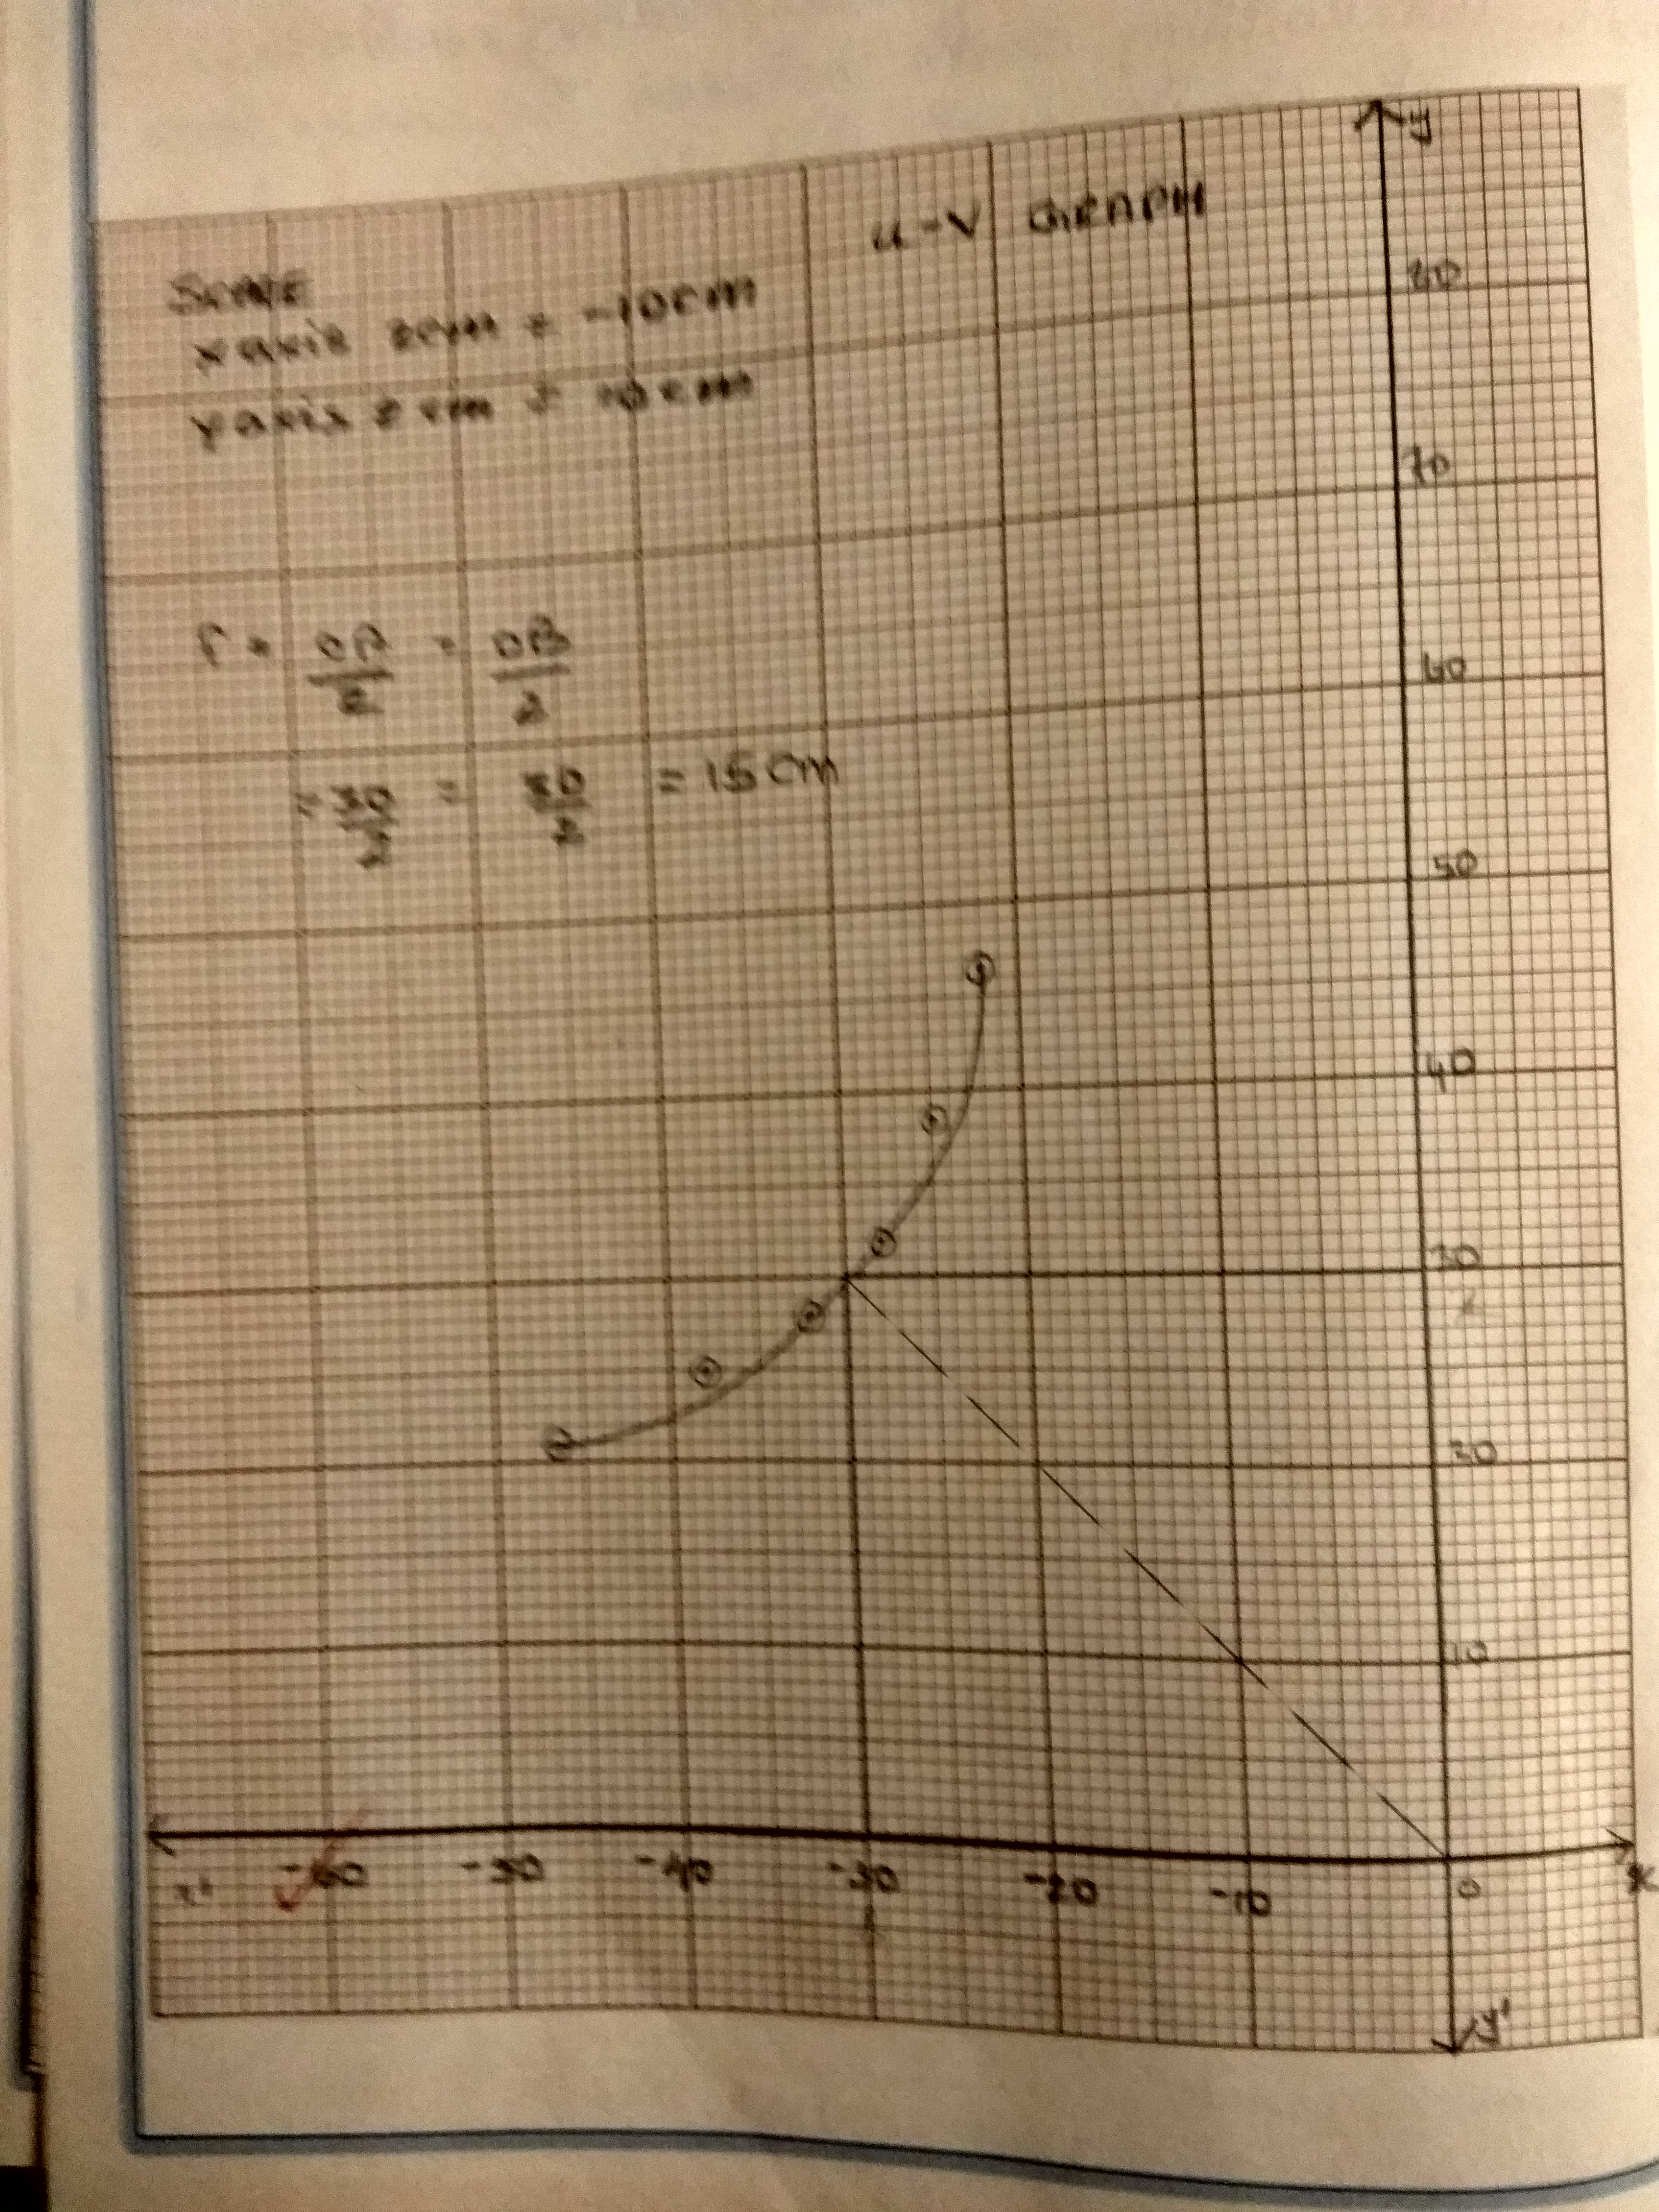 u-v GRAPH
SCALE
x axis 2cm = -10cm
y axis 2 cm = 10cm
f = OA/2 = OB/2
= 30/2 = 30/2 = 15 cm
y
80
70
60
50
40
30
20
10
x' -60 -50 -40 -30 -20 -10 0 x
y'